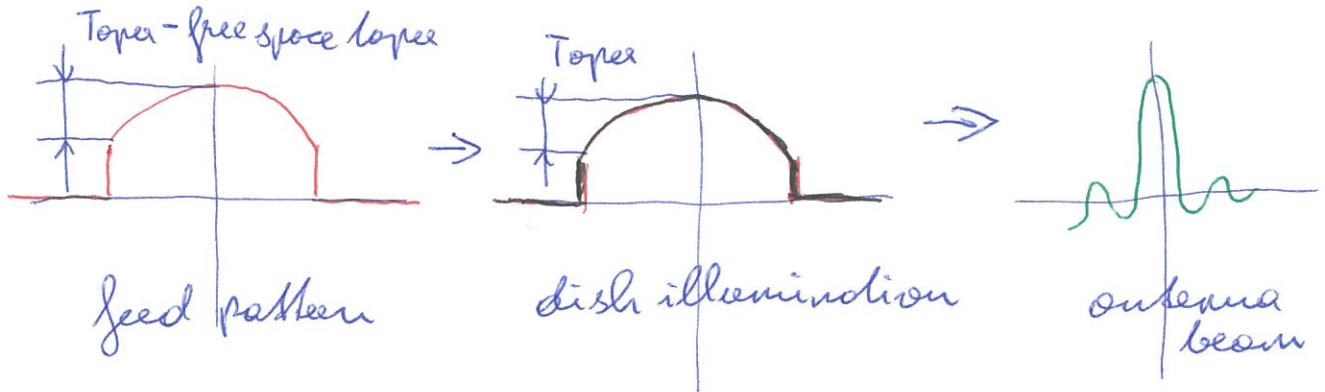 Taper-free space taper
Taper
feed pattern
dish illumination
antenna
beam